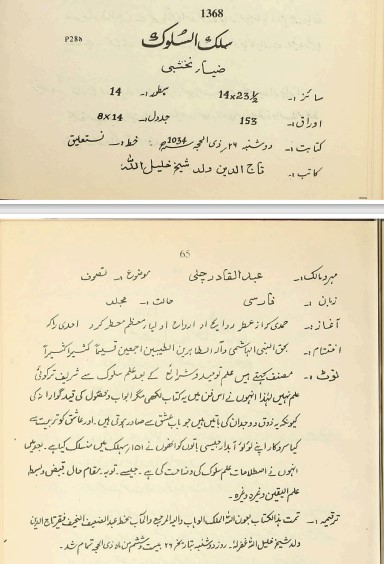 1368
P28b
سلک السلوک
ضیاء نخشبی
سائز :۔ 14x23½ سطر :۔ 14
اوراق :۔ 153 جدول :۔ 8x14
کتابت :۔ دوشنبہ ۲۶ ذی الحجہ 1034ھ : خط :۔ نستعلیق
کاتب :۔ تاج الدین ولد شیخ خلیل اللہ
65
مہر و مالک :۔ عبدالقادر چنی موضوع :۔ تصوف
زبان :۔ فارسی حالت :۔ مجلد
آغاز :۔ حمدی کہ از عطر روایح او ارواح اولیاء معظم معطر گردد احدی را کہ
اختتام :۔ بحق النبی الہاشمی وآلہ الطاہرین الطیبین اجمعین تسیلماً کثیراً کثیراً
نوٹ :۔ مصنف کہتے ہیں علم توحید و شرائع کے بعد علم سلوک سے شریف تر کوئی
علم نہیں لہٰذا انہوں نے اس فن میں یہ کتاب لکھی مگر ابواب و فصول کی قید گوارا نہ کی
کیونکہ یہ ذوق و وجدان کی باتیں ہیں جو باب عشق سے صادر ہوتی ہیں۔ اور عاشق کو تربیت سے
کیا سروکار اپنے لولوء آبدار جیسی باتوں کو انھوں نے ۱۵۱ سلک میں منسلک کیا ہے۔
انہوں نے اصطلاحات علم سلوک کی وضاحت کی ہے۔ جیسے۔ توبہ۔ مقام حال۔ قبض و بسط
علم الیقین وغیرہ وغیرہ۔
ترقیمہ :۔ تمت ہذا الکتاب بعون اللہ الملک الوہاب والیہ المرجع والمآب بخط عبدالضعیف النحیف فقیر تاج الدین
ولد شیخ خلیل اللہ غفرلہٗ۔ روز دوشنبہ بتاریخ ۲۶ بیست و ششم ماہ ذی الحجہ تمام شد۔